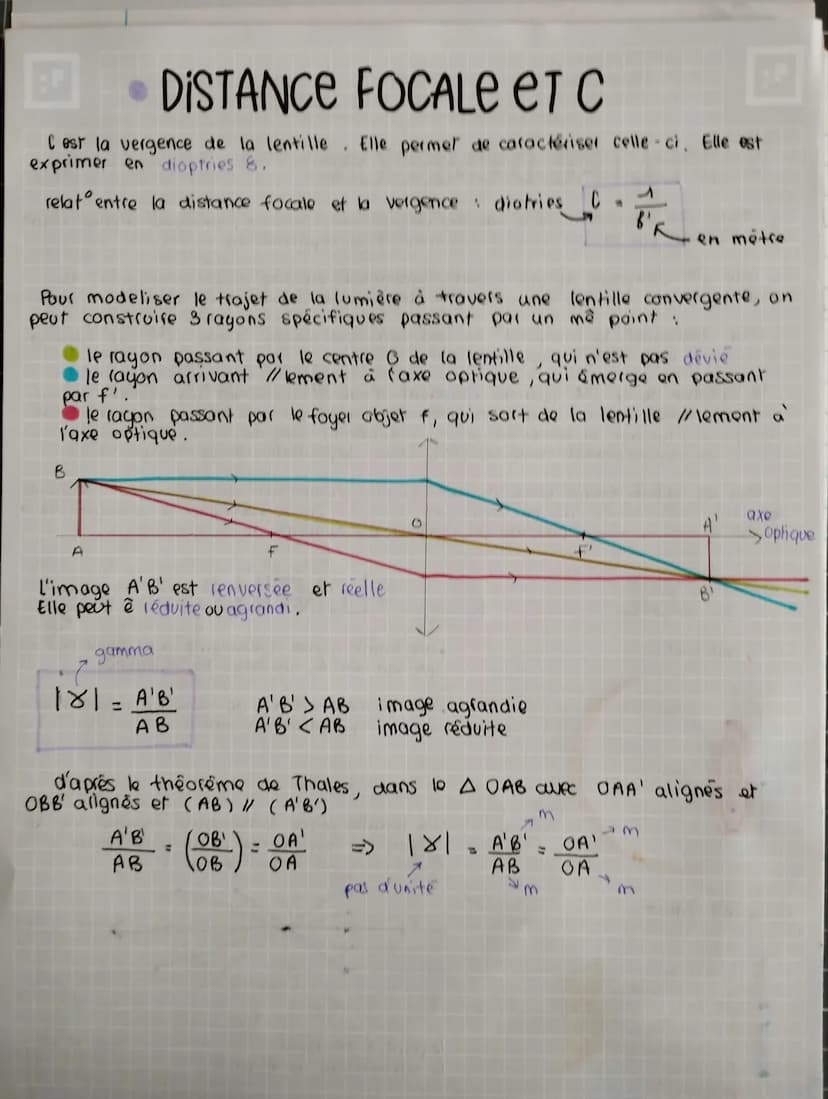 DISTANCE FOCALE ET C
C est la vergence de la lentille . Elle permet de caractériser celle-ci. Elle est
exprimer en dioptries δ.
relat° entre la distance focale et la vergence : diotries C = 1
f'
en mètre
Pour modeliser le trajet de la lumière à travers une lentille convergente, on
peut construire 3 rayons spécifiques passant par un mê point :
le rayon passant par le centre O de la lentille , qui n'est pas dévié
le rayon arrivant //lement à l'axe optique , qui émerge en passant
par f'.
le rayon passant par le foyer objet f, qui sort de la lentille //lement à
l'axe optique.
B
O
A'
axe
optique
A
F
F'
B'
L'image A'B' est renversée et réelle
Elle peut ê réduite ou agrandi.
gamma
|γ| = A'B'
AB
A'B' > AB image agrandie
A'B' < AB image réduite
d'après le théorème de Thales, dans le △ OAB avec OAA' alignés et
OBB' alignés et (AB) // (A'B')
A'B' = (OB') = OA' => |γ| = A'B' = OA'
AB (OB) OA AB OA
m
m
pas d'unité
m
m